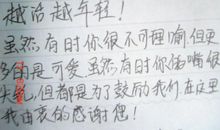 越活越年轻!
虽然有时你很不可理喻,但更
多的是可爱,虽然有时你的嘴很
失礼,但都是为了鼓励我们在这里
我由衷的感谢您!